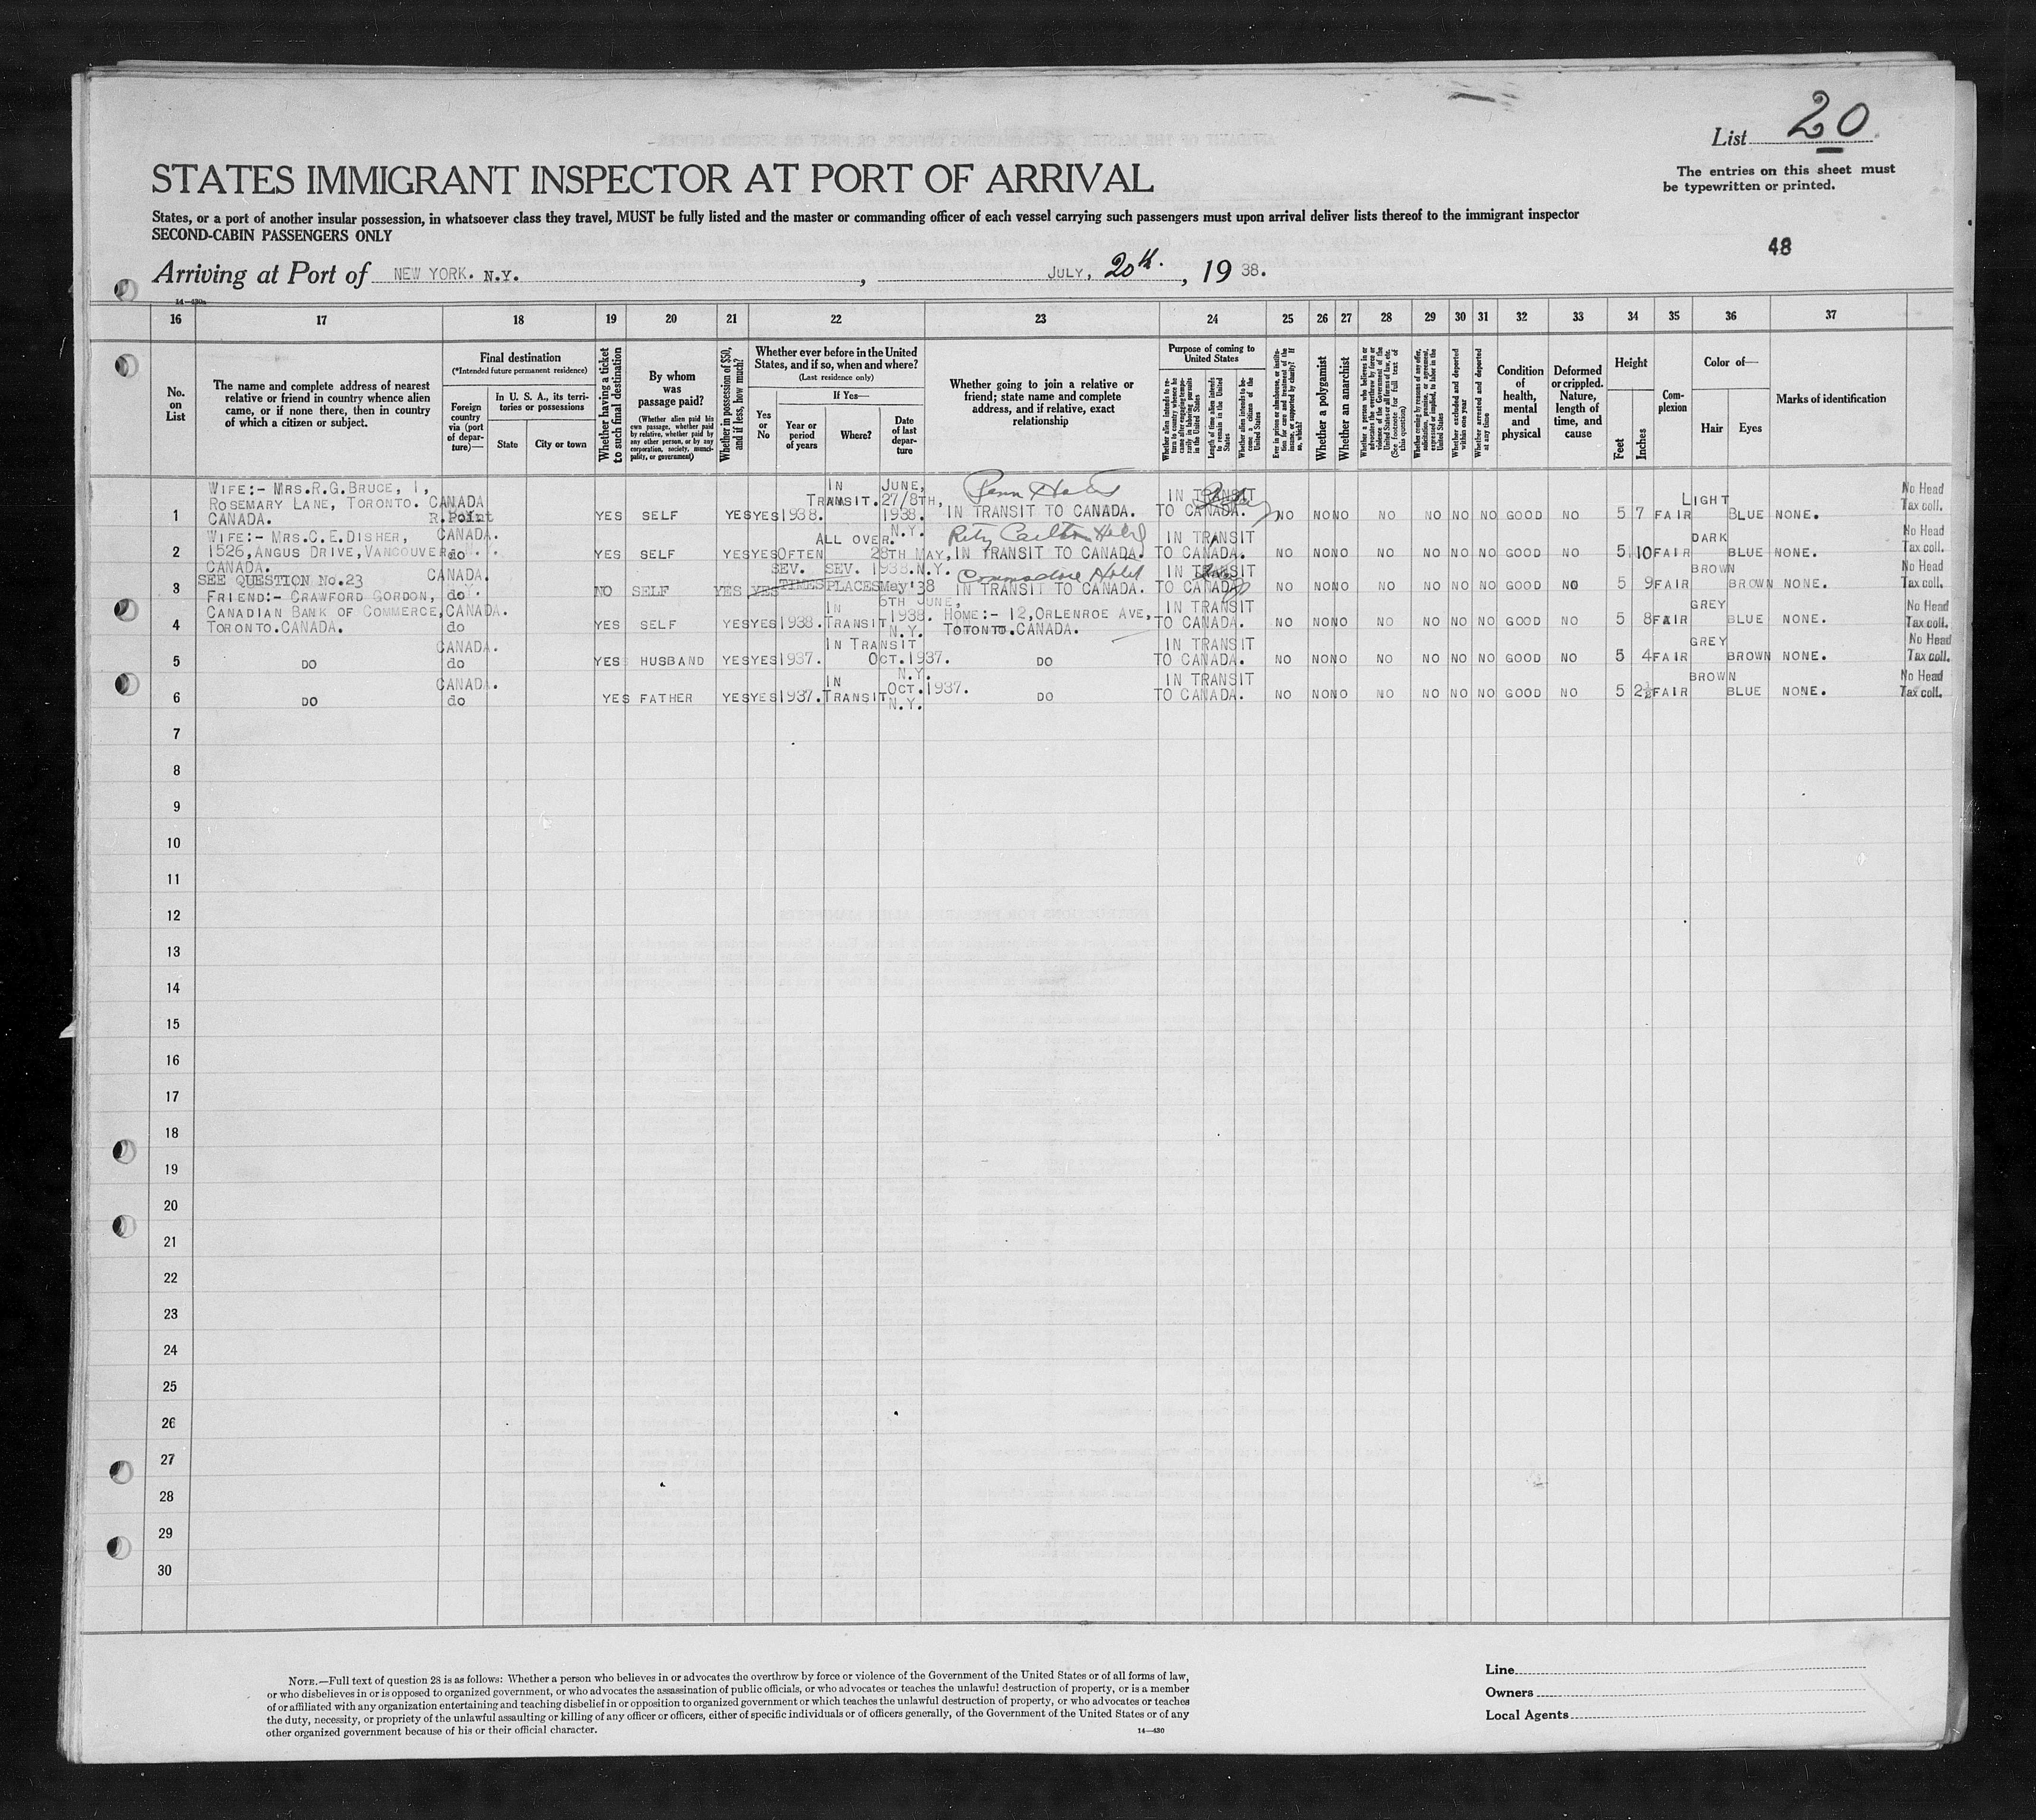 List 20
The entries on this sheet must
be typewritten or printed.
STATES IMMIGRANT INSPECTOR AT PORT OF ARRIVAL
States, or a port of another insular possession, in whatsoever class they travel, MUST be fully listed and the master or commanding officer of each vessel carrying such passengers must upon arrival deliver lists thereof to the immigrant inspector
SECOND-CABIN PASSENGERS ONLY
48
Arriving at Port of NEW YORK. N.Y., JULY, 20th., 19 38.
14—430a
16 17 18 19 20 21 22 23 24 25 26 27 28 29 30 31 32 33 34 35 36 37
No. on List
The name and complete address of nearest relative or friend in country whence alien came, or if none there, then in country of which a citizen or subject.
Final destination
(*Intended future permanent residence)
Foreign country via (port of departure)—
In U. S. A., its territories or possessions
State
City or town
Whether having a ticket to such final destination
By whom was passage paid?
(Whether alien paid his own passage, whether paid by relative, whether paid by any other person, or by any corporation, society, municipality, or government)
Whether in possession of $50, and if less, how much?
Whether ever before in the United States, and if so, when and where?
(Last residence only)
Yes or No
If Yes—
Year or period of years
Where?
Date of last departure
Whether going to join a relative or friend; state name and complete address, and if relative, exact relationship
Purpose of coming to United States
Whether alien intends to return to country whence he came after engaging temporarily in laboring pursuits in the United States
Length of time alien intends to remain in the United States
Whether alien intends to become a citizen of the United States
Ever in prison or almshouse, or institution for care and treatment of the insane, or supported by charity? If so, which?
Whether a polygamist
Whether an anarchist
Whether a person who believes in or advocates the overthrow by force or violence of the Government of the United States or all forms of law, etc. (See footnote for full text of this question)
Whether coming by reason of any offer, solicitation, promise, or agreement, expressed or implied, to labor in the United States
Whether excluded and deported within one year
Whether arrested and deported at any time
Condition of health, mental and physical
Deformed or crippled. Nature, length of time, and cause
Height
Feet
Inches
Complexion
Color of—
Hair
Eyes
Marks of identification
1 WIFE:- MRS.R.G.BRUCE, 1, ROSEMARY LANE, TORONTO. CANADA. CANADA R.Point YES SELF YES YES 1938. IN TRANSIT. JUNE, 27/8TH, 1938. N.Y. Penn Hotel IN TRANSIT TO CANADA. IN TRANSIT TO CANADA. NO NO NO NO NO NO NO GOOD NO 5 7 FAIR LIGHT BLUE NONE. No Head Tax coll.
2 WIFE:- MRS.C.E.DISHER, 1526, ANGUS DRIVE, VANCOUVER. CANADA. CANADA. do YES SELF YES YES OFTEN ALL OVER. 28TH MAY, 1938. N.Y. Ritz Carlton Hotel IN TRANSIT TO CANADA. IN TRANSIT TO CANADA. NO NO NO NO NO NO NO GOOD NO 5 10 FAIR DARK BLUE NONE. No Head Tax coll.
3 SEE QUESTION No.23 CANADA. do NO SELF YES YES SEV. TIMES SEV. PLACES May'38 Commodore Hotel IN TRANSIT TO CANADA. IN TRANSIT TO CANADA NO NO NO NO NO NO NO GOOD NO 5 9 FAIR BROWN BROWN NONE. No Head Tax coll.
4 FRIEND:- CRAWFORD GORDON, CANADIAN BANK OF COMMERCE, TORONTO.CANADA. CANADA. do YES SELF YES YES 1938. IN TRANSIT 6TH JUNE, 1938. N.Y. HOME:- 12, ORLENROE AVE, TORONTO.CANADA. IN TRANSIT TO CANADA. NO NO NO NO NO NO NO GOOD NO 5 8 FAIR GREY BLUE NONE. No Head Tax coll.
5 DO CANADA. do YES HUSBAND YES YES 1937. IN TRANSIT OCT.1937. N.Y. DO IN TRANSIT TO CANADA. NO NO NO NO NO NO NO GOOD NO 5 4 FAIR GREY BROWN NONE. No Head Tax coll.
6 DO CANADA. do YES FATHER YES YES 1937. IN TRANSIT OCT.1937. N.Y. DO IN TRANSIT TO CANADA. NO NO NO NO NO NO NO GOOD NO 5 2½ FAIR BROWN BLUE NONE. No Head Tax coll.
7
8
9
10
11
12
13
14
15
16
17
18
19
20
21
22
23
24
25
26
27
28
29
30
NOTE.—Full text of question 28 is as follows: Whether a person who believes in or advocates the overthrow by force or violence of the Government of the United States or of all forms of law,
or who disbelieves in or is opposed to organized government, or who advocates the assassination of public officials, or who advocates or teaches the unlawful destruction of property, or is a member
of or affiliated with any organization entertaining and teaching disbelief in or opposition to organized government or which teaches the unlawful destruction of property, or who advocates or teaches
the duty, necessity, or propriety of the unlawful assaulting or killing of any officer or officers, either of specific individuals or of officers generally, of the Government of the United States or of any
other organized government because of his or their official character.
14—430
Line
Owners
Local Agents